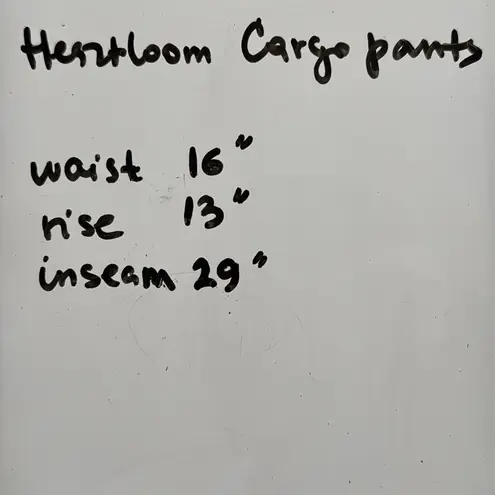 Heartloom Cargo pants
waist 16"
rise 13"
inseam 29"